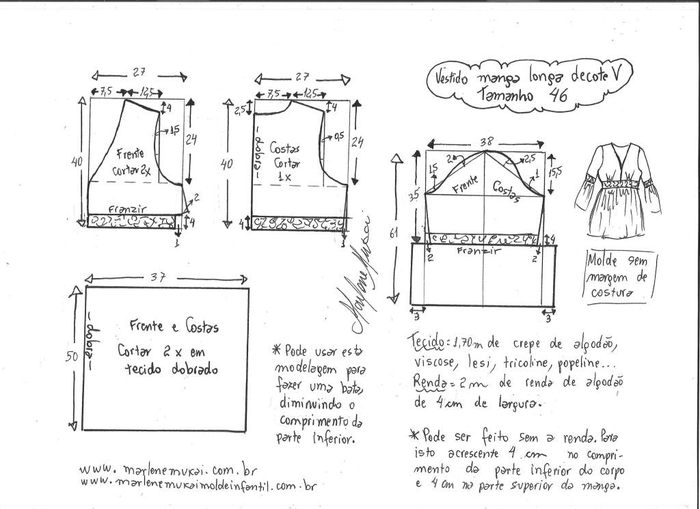 Vestido manga longa decote V
Tamanho 46
27
7,5
12,5
4
1,5
40
24
Frente
cortar 2x
Franzir
2
4
1
27
2,5
7,5
12,5
4
0,5
40
24
dobra
Costas
Cortar
1x
4
1
38
2
2,5
1,5
1
15,5
Frente
Costas
35
61
4
Franzir
2
2
3
3
Molde sem
margem de
costura
Marlene Mukai
37
50
dobra
Frente e Costas
Cortar 2x em
tecido dobrado
* Pode usar esta
modelagem para
fazer uma bata,
diminuindo o
comprimento da
parte inferior.
Tecido = 1,70 m de crepe de algodão,
viscose, lesi, tricoline, popeline...
Renda = 2 m de renda de algodão
de 4 cm de largura.
* Pode ser feito sem a renda. Para
isto acrescente 4 cm no compri-
mento da parte inferior do corpo
e 4 cm na parte superior da manga.
www.marlenemukai.com.br
www.marlenemukaimoldeinfantil.com.br